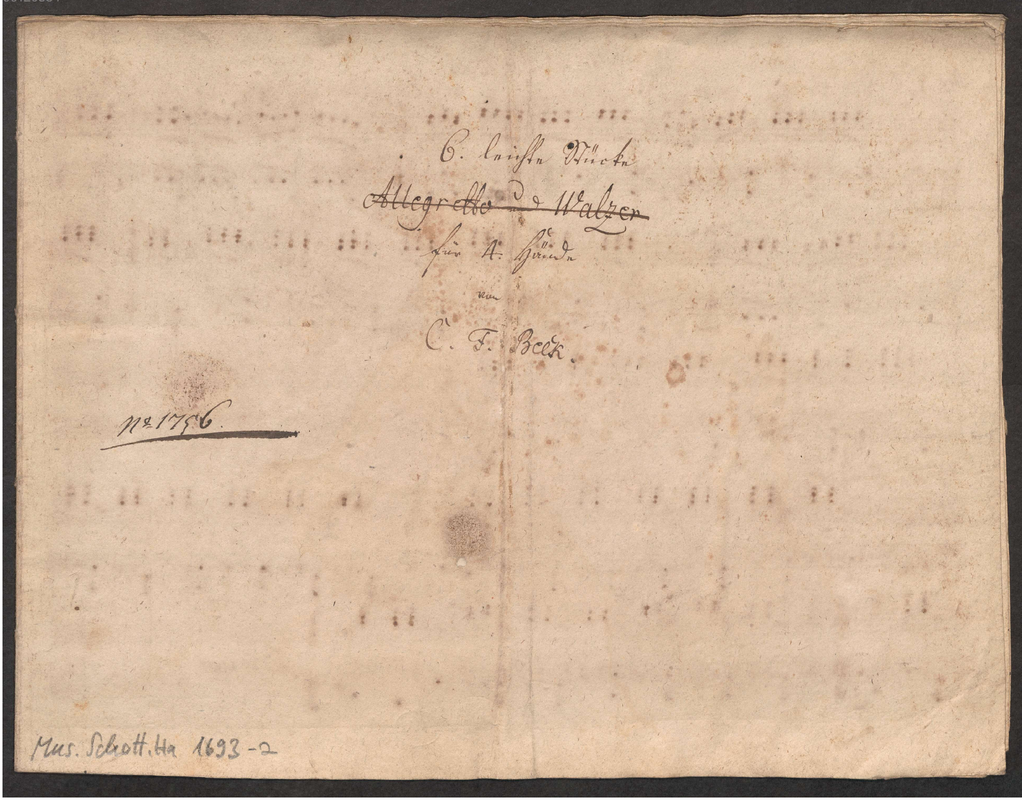 6. leichte Stücke
Allegretto u d Walzer
für 4. Hände
von
C. F. Beck.
No 1756.
Mus. Schott. Ha 1693-2